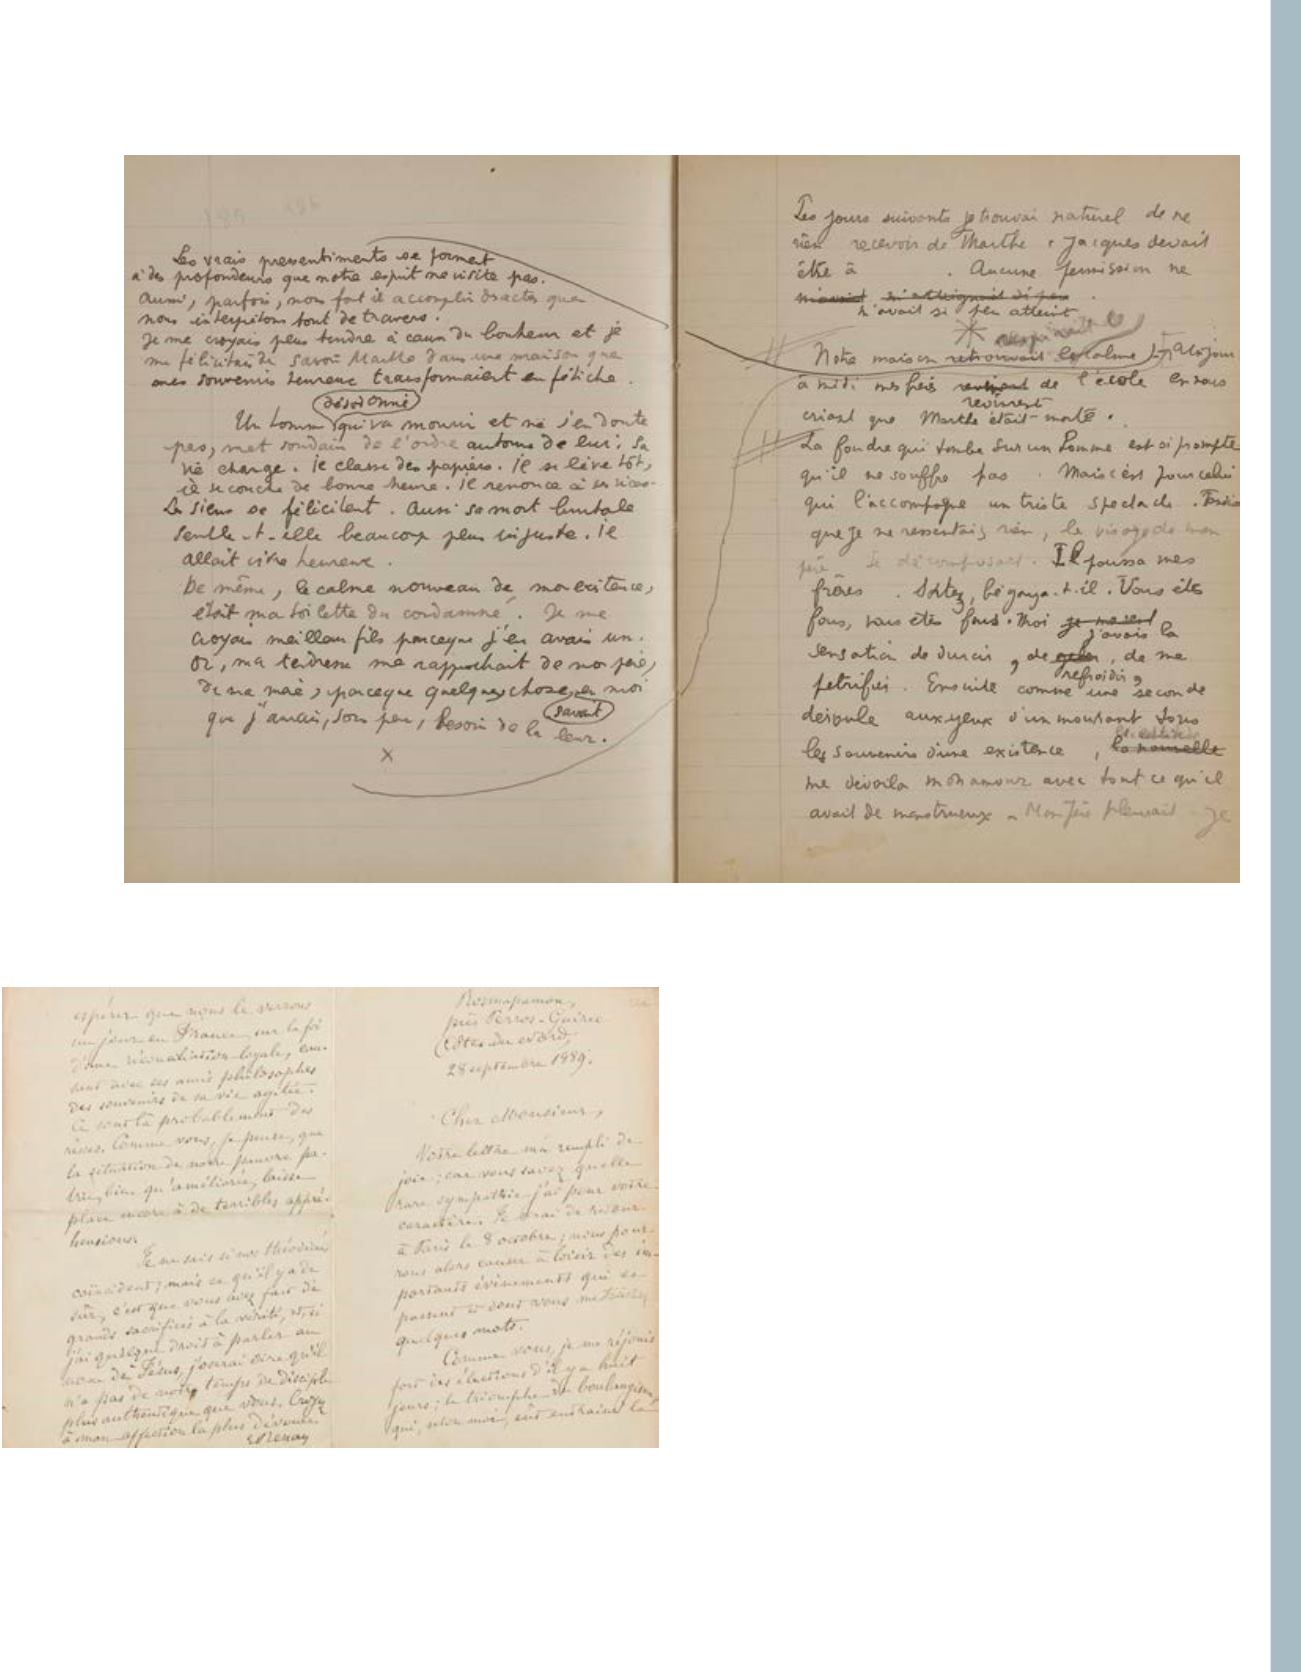 Les vrais pressentiments se forment
à des profondeurs que notre esprit ne visite pas.
Aussi, parfois, nous font il accomplir des actes que
nous interpretons tout de travers.
Je me croyais plus tendre à cause du bonheur et je
me félicitais de savoir Marthe dans une maison que
mes souvenirs heureux transformaient en fétiche.
désordonné
Un homme qui va mourir et ne s'en doute
pas, met soudain de l'ordre autour de lui. Sa
vie change. il classe des papiers. il se lève tôt,
il se couche de bonne heure. il renonce à ses vices.
Les siens se félicitent. Aussi sa mort brutale
semble-t-elle beaucoup plus injuste. il
allait vivre heureux.
De même, le calme nouveau de mon existence,
était ma toilette du condamné. Je me
croyais meilleur fils parceque j'en avais un.
Or, ma tendresse me rapprochait de mon père,
de ma mère, parceque quelque chose en moi
savait
que j'aurais, sous peu, besoin de la leur.
X
Les jours suivants je trouvai naturel de ne
rien recevoir de Marthe. Jacques devait
être à . Aucune permission ne
n'avait si peu atteint
Notre maison retrouvait le calme. Un jour
à midi mes frères de l'école en nous
revinrent
criant que Marthe était morte.
La foudre qui tombe sur un homme est si prompte
qu'il ne souffre pas. Mais c'est pour celui
qui l'accompagne un triste spectacle. Tandis
que je ne ressentais rien, le visage de mon
père se décomposait. Il poussa mes
frères. Sortez, bégaya-t-il. Vous êtes
fous, vous êtes fous. Moi je me sent
j'avais la
sensation de durcir, de geler, de me
refroidir,
petrifier. Ensuite comme une seconde
déroule aux yeux d'un mourant tous
les souvenirs d'une existence, la nouvelle
la certitude
me dévoila mon amour avec tout ce qu'il
avait de monstrueux. Mon père pleurait. Je
espérer que nous le verrons
un jour en France, sur la foi
d'une réconciliation loyale, cau-
sant avec ses amis philosophes
des souvenirs de sa vie agitée.
Ce sont là probablement des
rêves. Comme vous, je pense, que
la situation de notre pauvre pa-
trie, bien qu'améliorée, laisse
place encore à de terribles appré-
hensions.
Je ne sais si nos théodicées
coïncident; mais ce qu'il y a de
sûr, c'est que vous avez fait de
grands sacrifices à la vérité, et, si
j'ai quelque droit à parler au
nom de Jésus, j'oserai dire qu'il
n'a pas de notre temps de disciple
plus authentique que vous. Croyez
à mon affection la plus dévouée.
E. Renan
Rosmapamon,
près Perros-Guirec
Côtes du Nord,
28 septembre 1889.
Cher Monsieur,
Votre lettre m'a rempli de
joie; car vous savez quelle
rare sympathie j'ai pour votre
caractère. Je serai de retour
à Paris le 8 octobre; nous pour-
rons alors causer à loisir des im-
portants évènements qui se
passent et dont vous me touchez
quelques mots.
Comme vous, je me réjouis
fort des élections d'il y a huit
jours; le triomphe du boulangisme
qui, selon moi, eût entraîné la